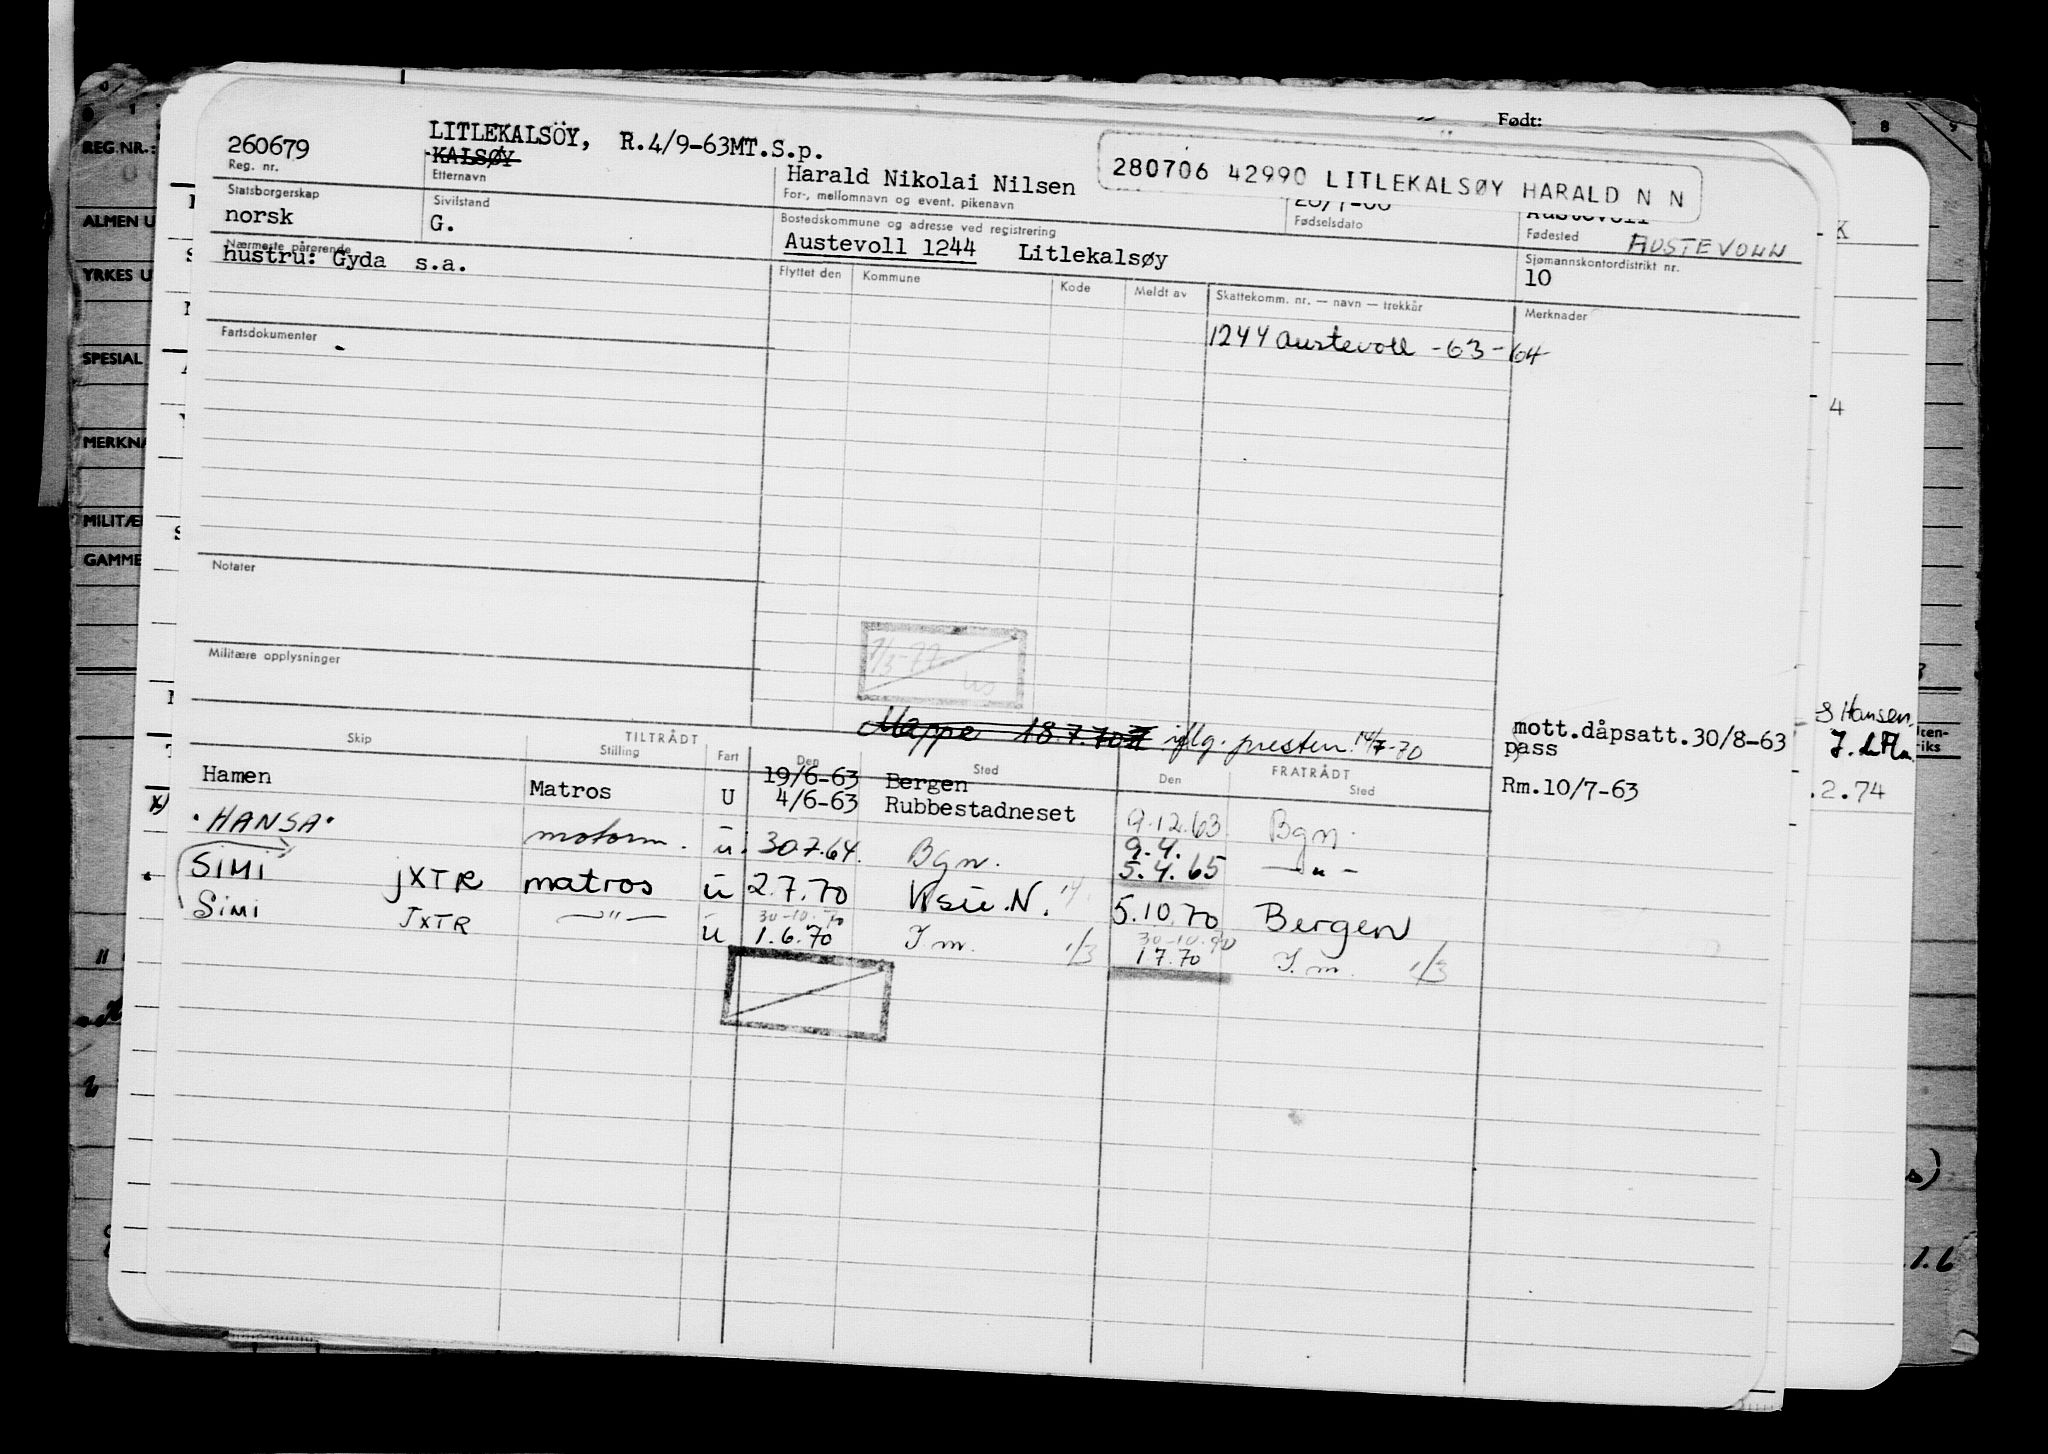 Født:
260679
LITLEKALSÖY, R.4/9-63MT.S.p.
KALSØY
280706 42990 LITLEKALSØY HARALD N N
Reg. nr.
Etternavn
Harald Nikolai Nilsen
For-, mellomnavn og event. pikenavn
Fødselsdato
Austevoll
Fødested
AUSTEVOLL
Statsborgerskap
norsk
Sivilstand
G.
Bostedskommune og adresse ved registrering
Austevoll 1244 Litlekalsøy
Sjømannskontordistrikt nr.
10
Nærmeste pårørende
hustru: Gyda s.a.
Flyttet den
Kommune
Kode
Meldt av
Skattekomm. nr. — navn — trekkår
Merknader
1244 Austevoll -63-64
Fartsdokumenter
Notater
Militære opplysninger
Mappe 18.7.70 iflg. presten 14/7-70
mott.dåpsatt.30/8-63
pass
Rm.10/7-63
TILTRÅDT
FRATRÅDT
Skip
Stilling
Fart
Den
Sted
Den
Sted
Hamen Matros U 19/6-63 Bergen
4/6-63 Rubbestadneset 9.12.63 Bgn.
HANSA motorm. u. 30.7.64. Bgn. 9.4.
5.4.65 — " —
SIMI JXTR matros u 2.7.70 5.10.70 Bergen
SIMI JXTR — " — u 30-10.70 30-10.70
1.6.70 I m. 1/3 1 7.70 I. m. 1/3
REG.NR.:
ALMEN U
YRKES U
SPESIAL
MERKNA
MILITÆR
GAMME
S Hansen.
.2.74
.1.6